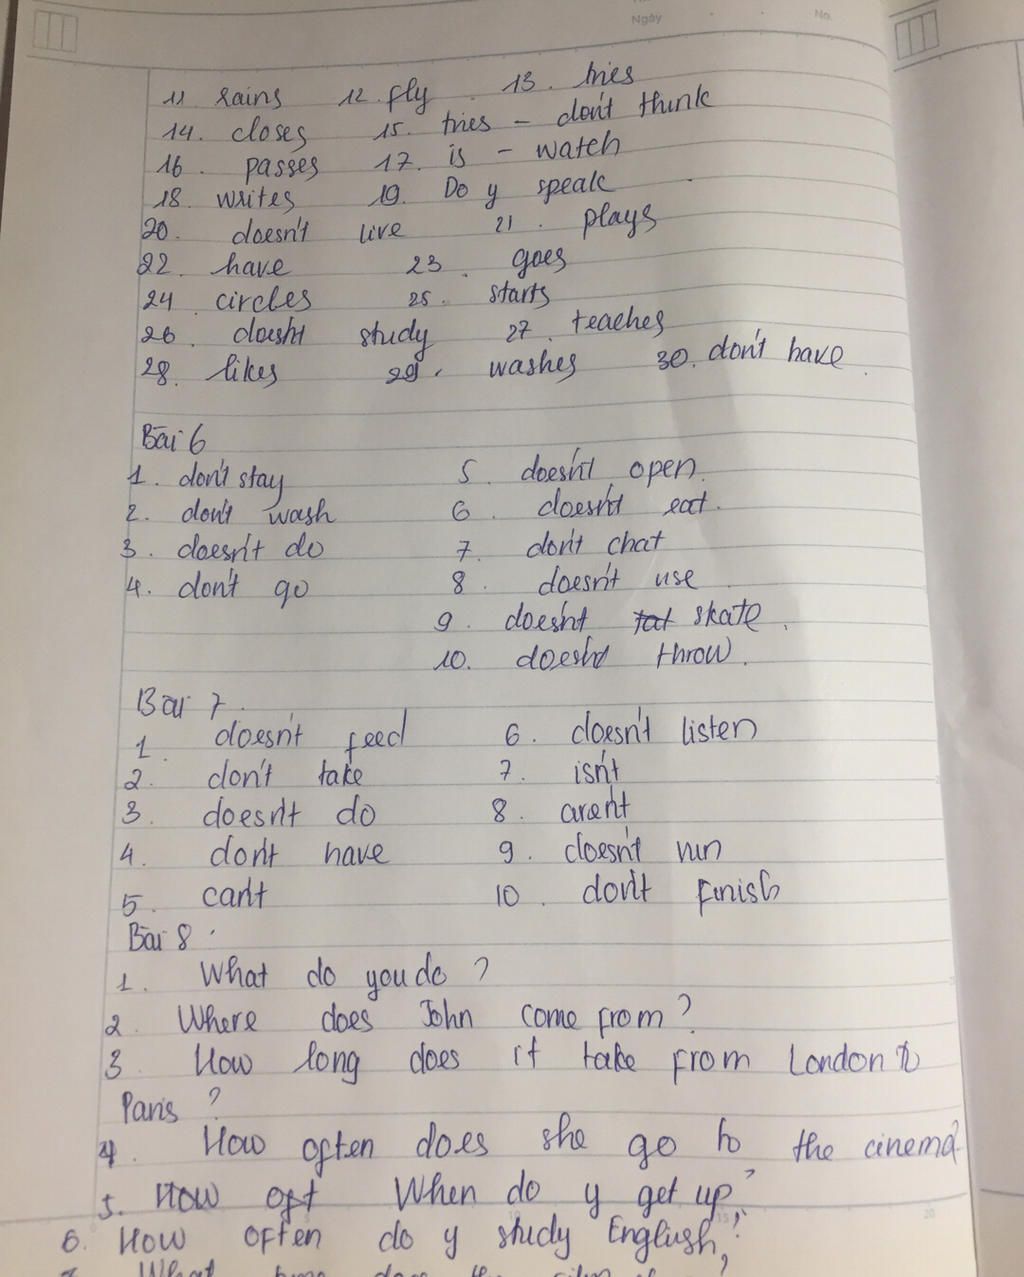 Ngày No.
11 rains 12. fly 13. tries
14. closes 15. tries - don't think
16. passes 17. is - watch
18. writes 19. Do y speak
20. doesn't live 21. plays
22. have 23. goes
24 circles 25. starts
26. doesn't study 27. teaches
28. likes 29. washes 30. don't have
Bài 6
1. don't stay 5. doesn't open.
2. don't wash 6. doesn't eat.
3. doesn't do 7. don't chat
4. don't go 8. doesn't use
9. doesn't skate.
10. doesn't throw.
Bài 7.
1. doesn't feed 6. doesn't listen
2. don't take 7. isn't
3. doesn't do 8. aren't
4. don't have 9. doesn't run
5. can't 10. don't finish
Bài 8.
1. What do you do?
2 Where does John come from?
3 How long does it take from London to
Paris?
4. How often does she go to the cinema?
5. How oft When do y get up?
6. How often do y study English?